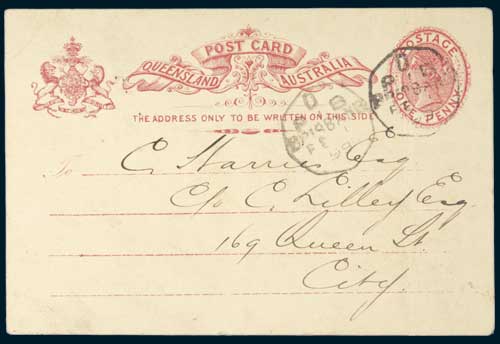 POST CARD
QUEENSLAND AUSTRALIA
POSTAGE
ONE PENNY
THE ADDRESS ONLY TO BE WRITTEN ON THIS SIDE
To C. Harris Esq
C/o C. Lilley Esq
169 Queen St.
City.